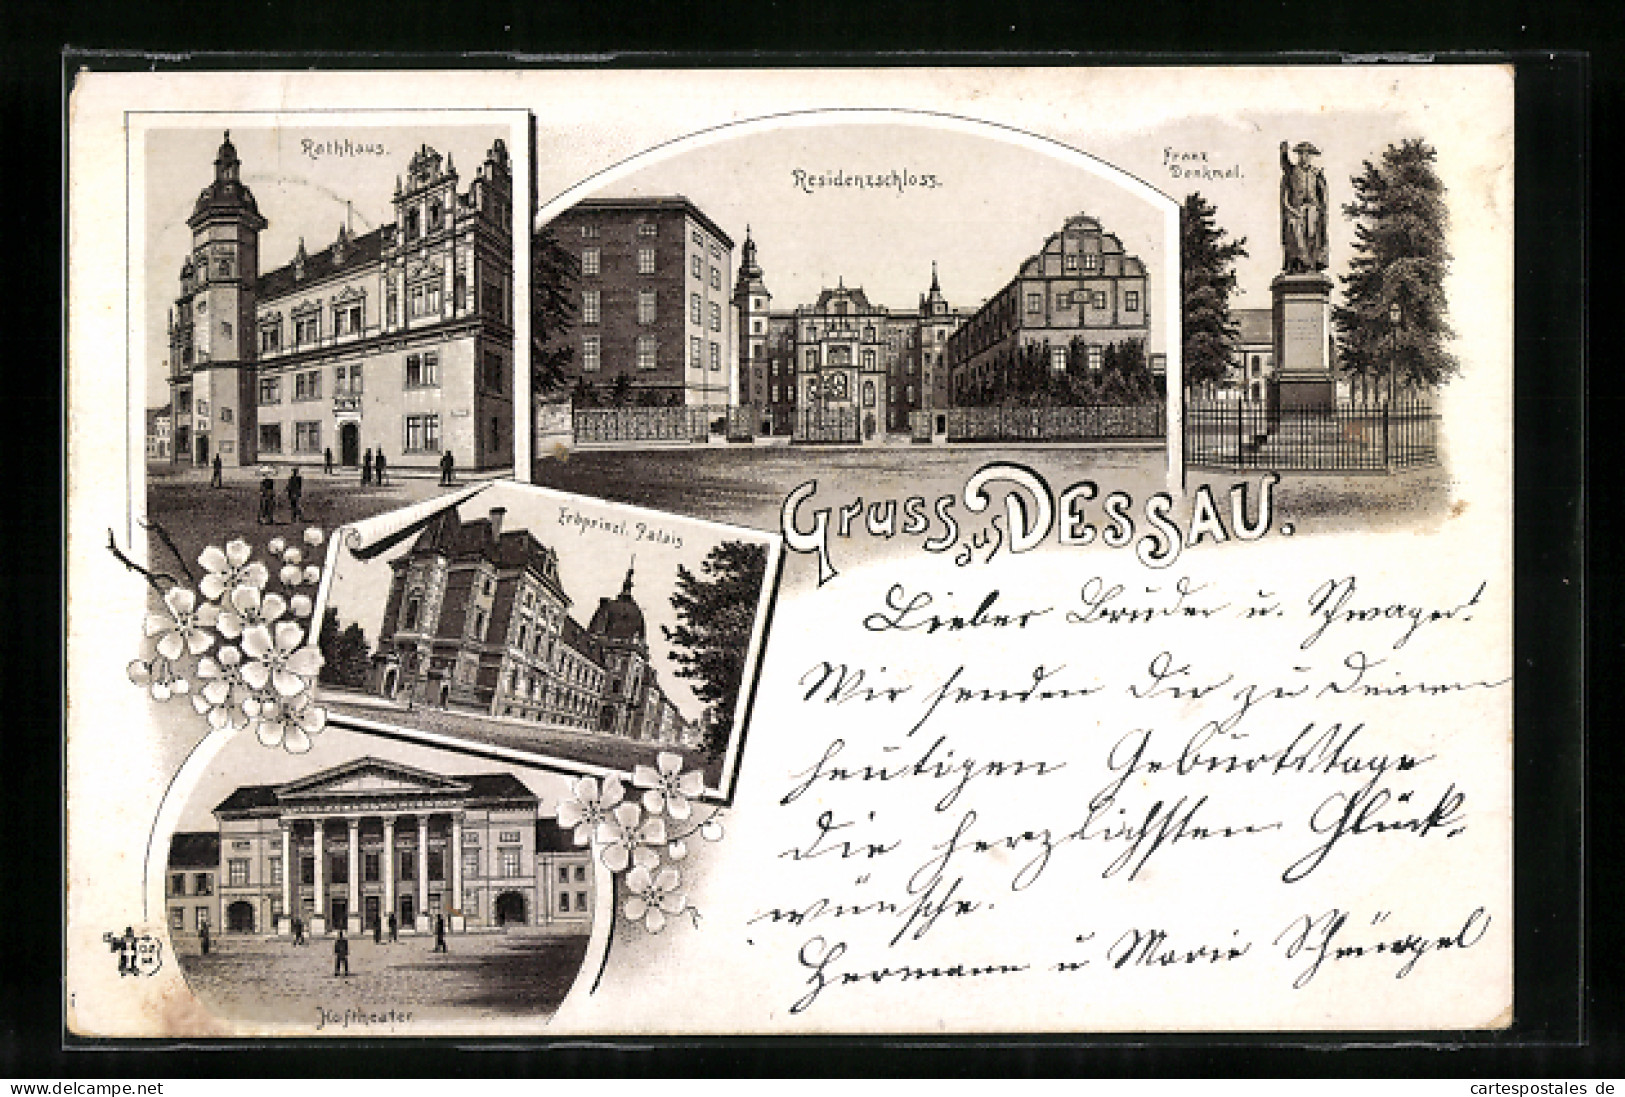 Rathhaus.
Residenzschloss.
Franz
Denkmal.
Erbprinzl. Palais
Gruss aus DESSAU.
Lieber Bruder u. Schwager!
Wir senden Dir zu Deinem
heutigen Geburtstage
die herzlichsten Glück-
wünsche.
Hermann u Marie
Hoftheater.
delcampe.net
cartespostales de